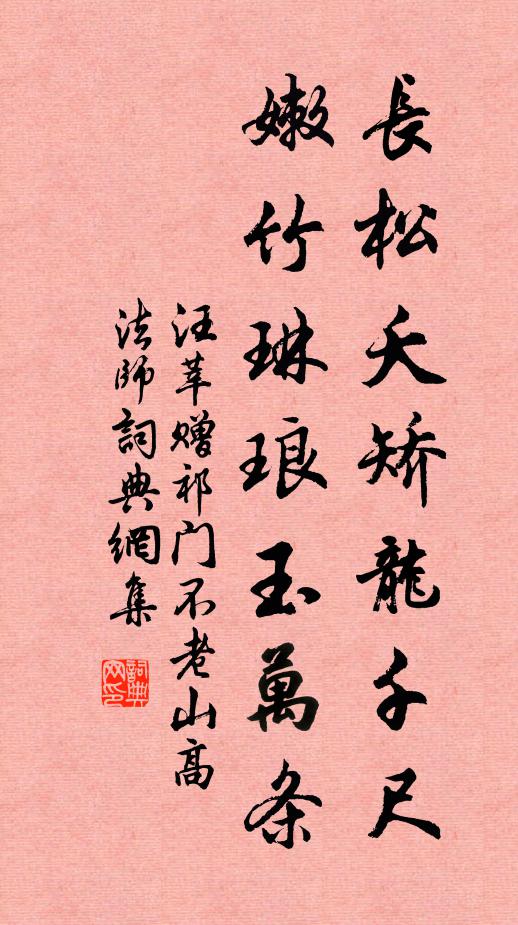 長松夭矯龍千尺
嫩竹琳琅玉萬条
汪莘赠祁门不老山高
法師詞典網集
詞典网印